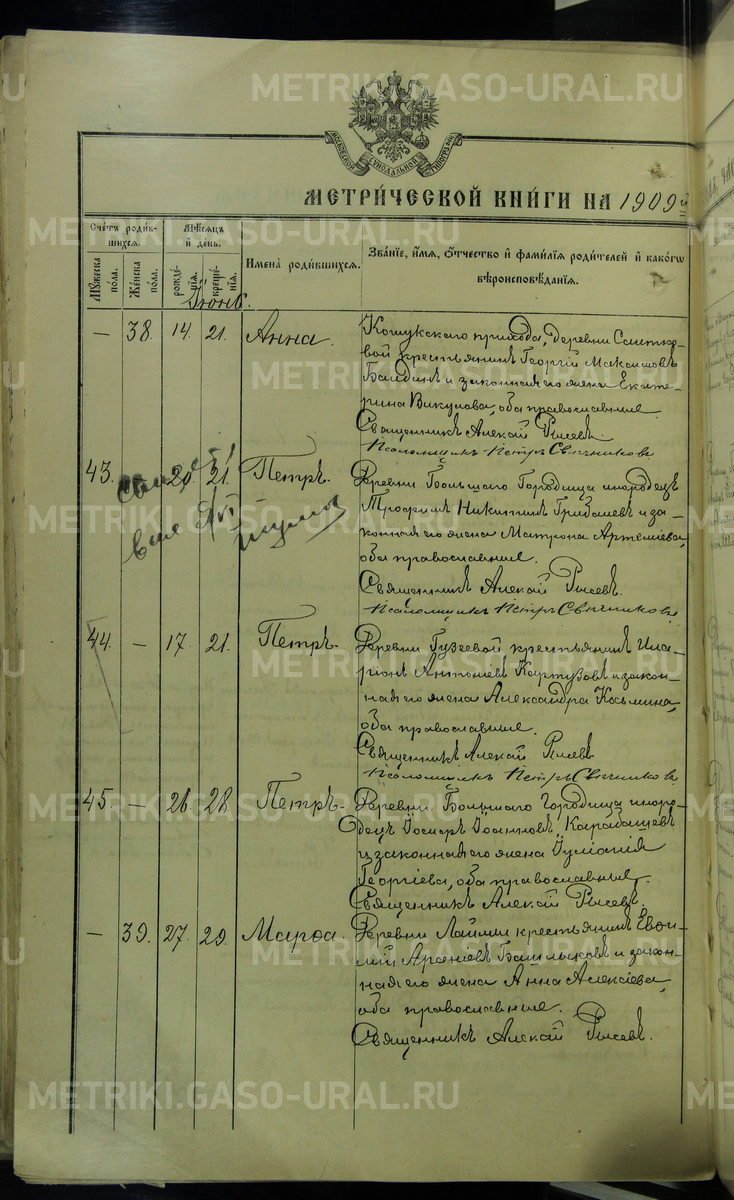 METRIKI.GASO-URAL.RU
МОСКОВСКОЙ СѴНОДАЛЬНОЙ ТИПОГРАФІИ
МЕТРИ́ЧЕСКОЙ КНИ́ГИ НА 1909й
Сче́тъ роди́вшихся.
Мѣ́сяцъ и҆ де́нь.
Имена̀ роди́вшихся.
Зва́нїе, и҆́мѧ, ѻ҆́тчество и҆ фами́лїѧ роди́телей и҆ како́гѡ вѣроисповѣ́данїѧ.
Мꙋ́жеска по́ла.
Же́нска по́ла.
рожде́нїѧ.
креще́нїѧ.
Іюнь.
— 38. 14. 21. Анна.
Кошукскаго прихода, деревни
крестьянинъ Георгій Максимовъ
и законная его жена Екате-
рина Викулова, оба православные.
Священникъ Алексій Рысевъ.
Псаломщикъ Петръ Свѣчниковъ
43. 20 21. Петръ.
Деревни Большаго Городища инородецъ
Трофимъ Никитинъ и за-
конная его жена Матрона Артеміева,
оба православные.
Священникъ Алексій Рысевъ.
Псаломщикъ Петръ Свѣчниковъ
44. — 17. 21. Петръ.
Деревни Гузеевой крестьянинъ Ила-
ріонъ Антоніевъ Картузовъ и закон-
ная его жена Александра Косьмина,
оба православные.
Священникъ Алексій Рысевъ
Псаломщикъ Петръ Свѣчниковъ
45. — 26 28 Петръ.
Деревни Большаго Городища иноро-
децъ Іоаннъ Іоанновъ Карабашевъ
и законная его жена Іуліанія
Георгіева, оба православные.
Священникъ Алексій Рысевъ.
— 39. 27. 29. Марѳа.
Деревни Лаймы крестьянинъ Евѳи-
мій Арсеніевъ и закон-
ная его жена Анна Алексіева,
оба православные.
Священникъ Алексій Рысевъ.